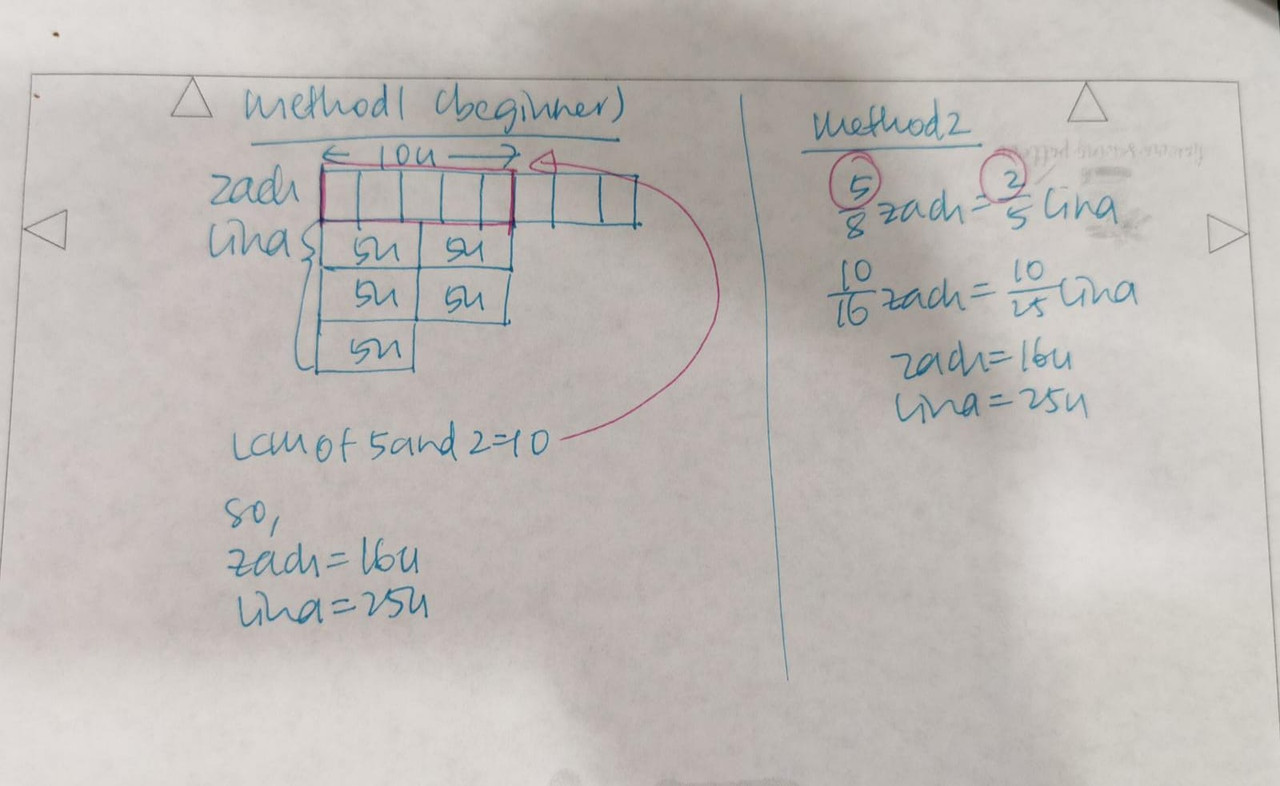 Method 1 (beginner)
← 10u →
Zach
Lina
5u 5u
5u 5u
5u
LCM of 5 and 2 = 10
So,
Zach = 16u
Lina = 25u
Method 2
5/8 Zach = 2/5 Lina
10/16 Zach = 10/25 Lina
Zach = 16u
Lina = 25u